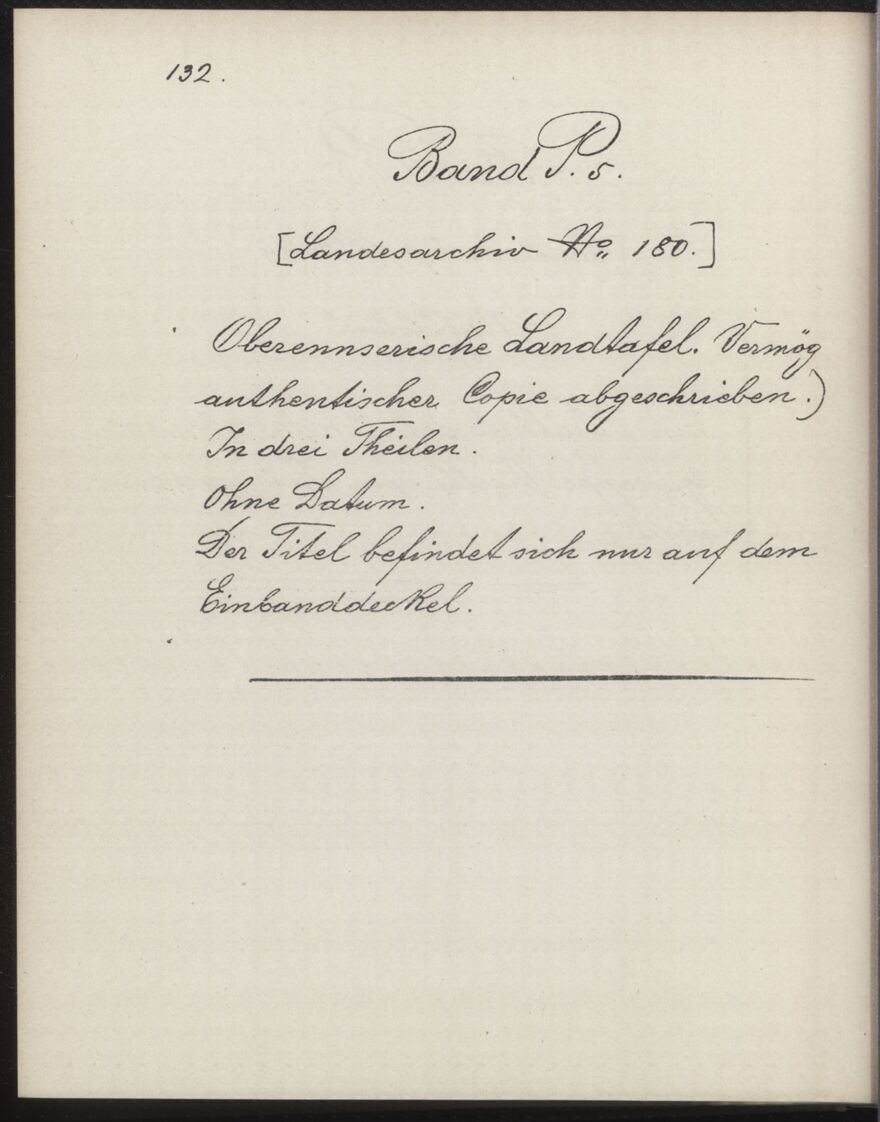 132.
Band P. 5.
[Landesarchiv No. 180.]
Oberennserische Landtafel. Vermög
authentischer Copie abgeschrieben.)
In drei Theilen.
Ohne Datum.
Der Titel befindet sich nur auf dem
Einbanddeckel.